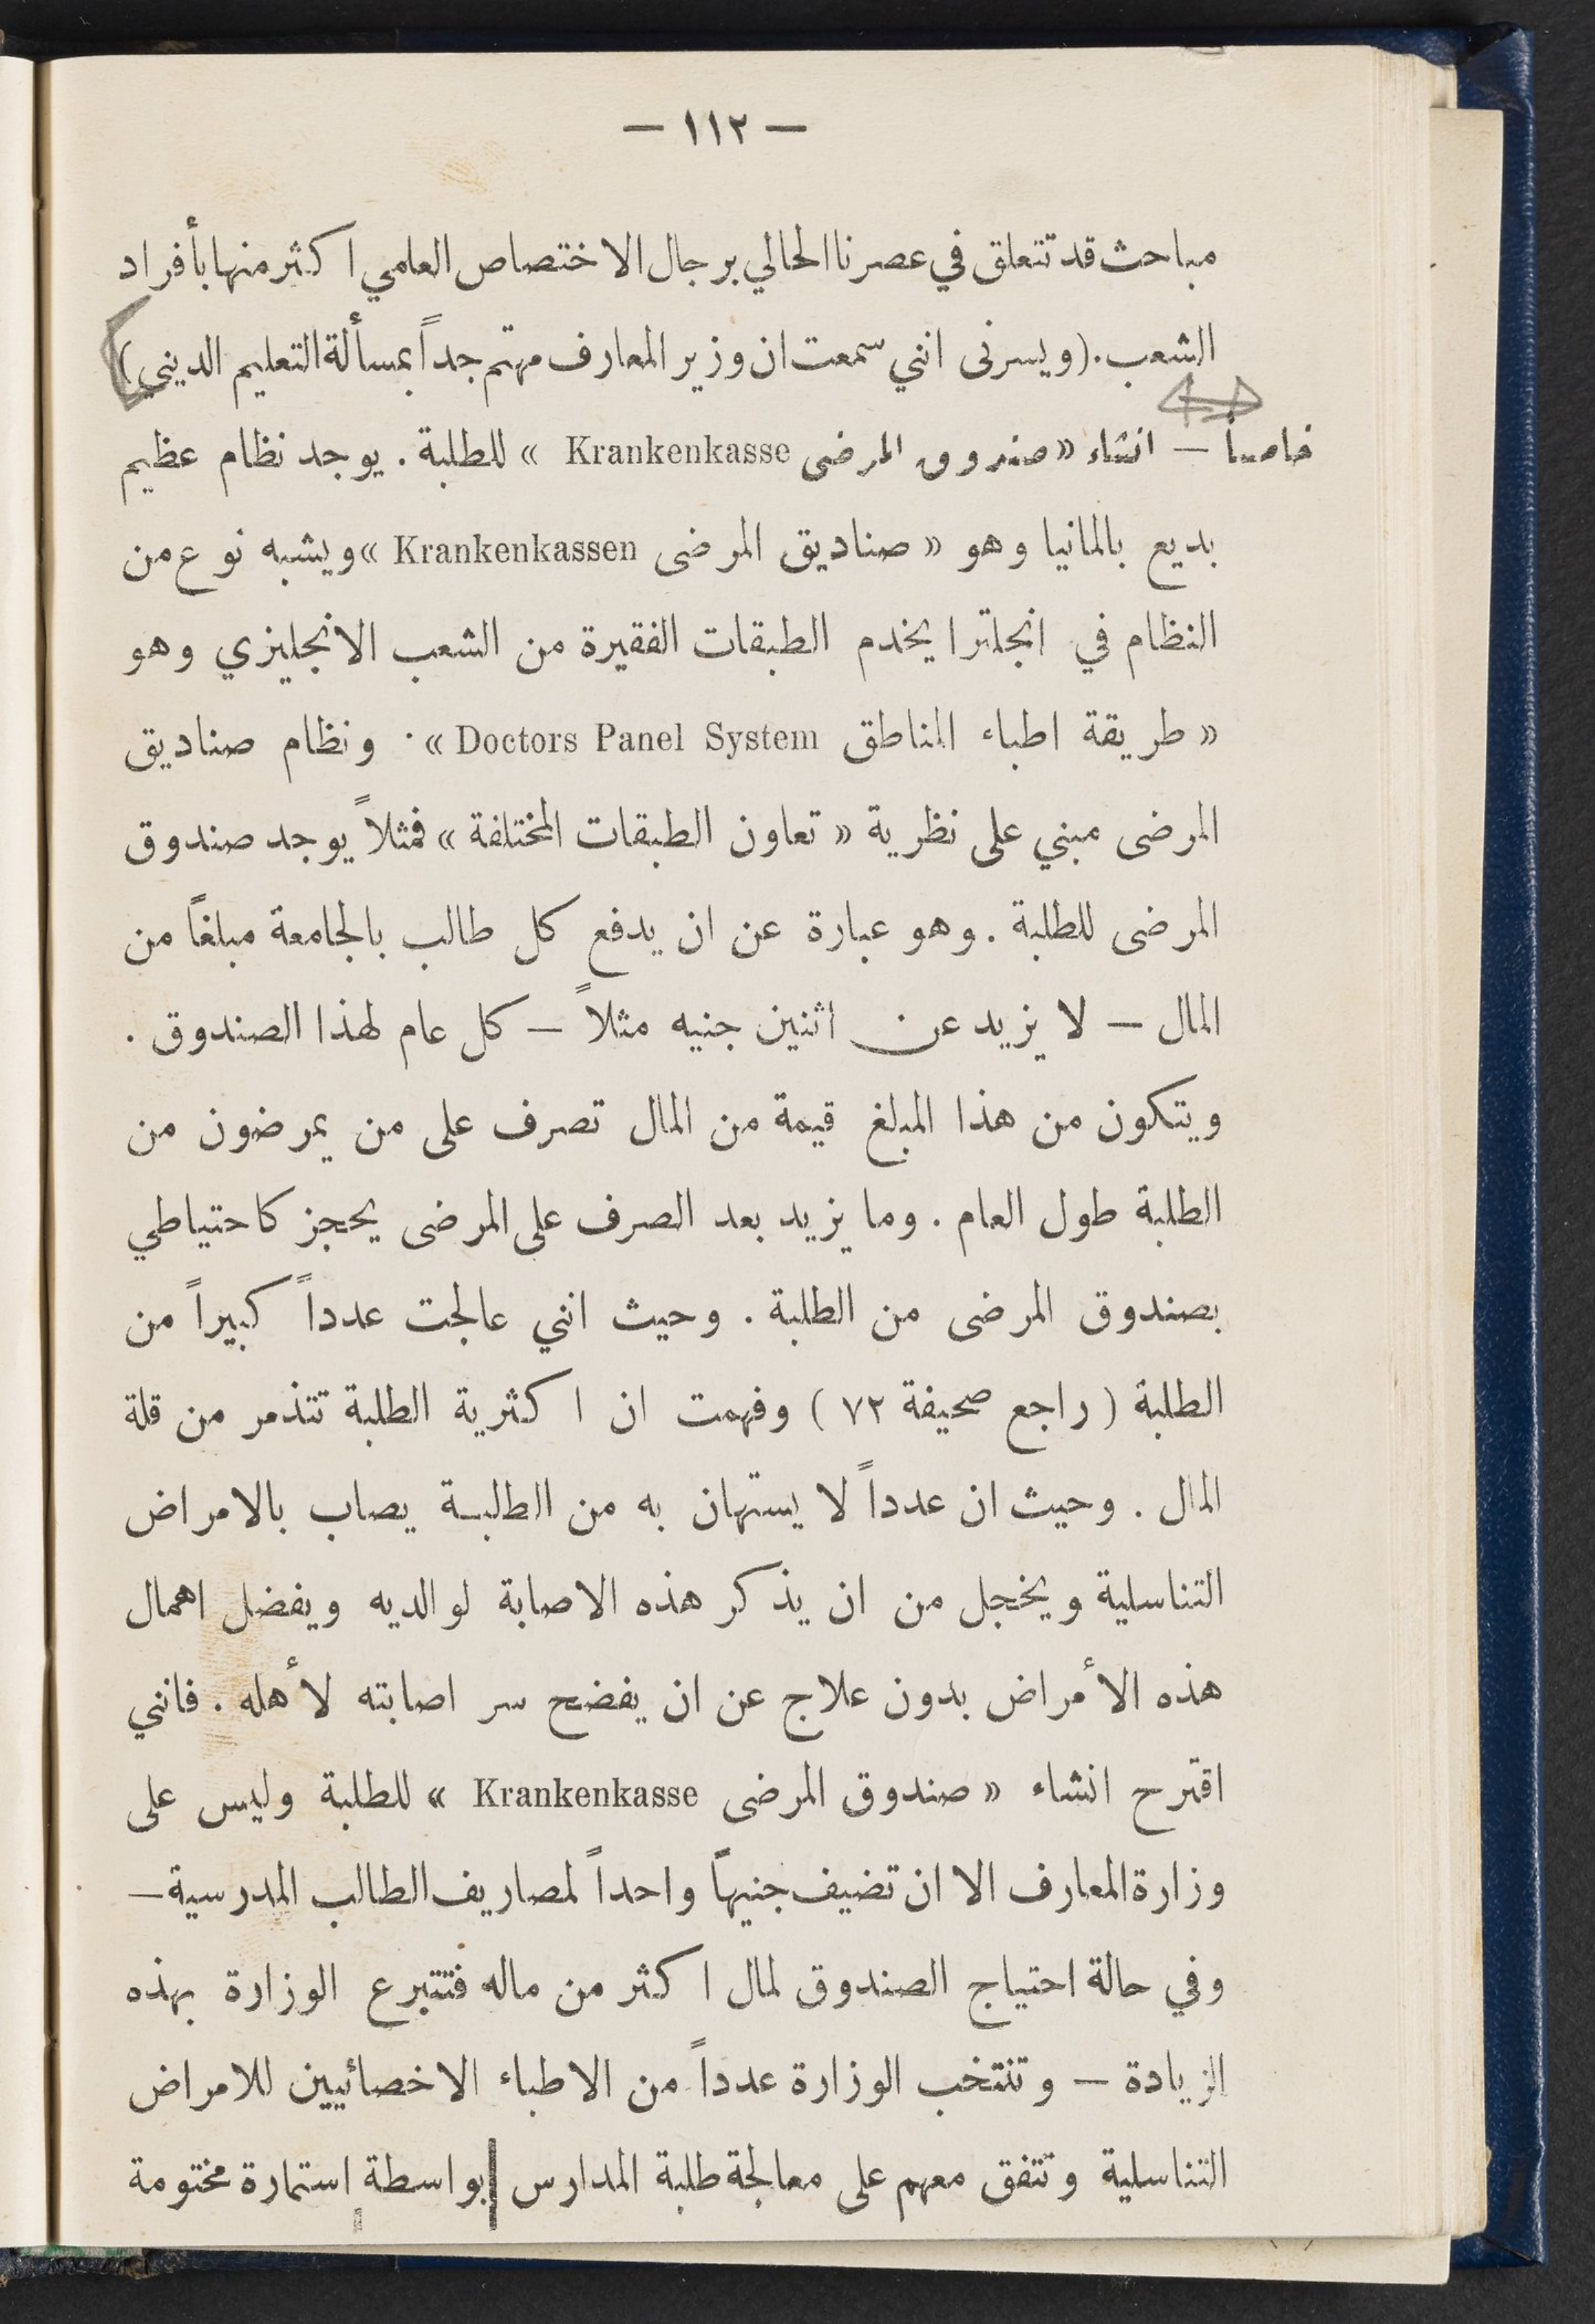 — ١١٢ —
مباحث قد تتعلق في عصرنا الحالي برجال الاختصاص العلمي اكثر منها بأفراد
الشعب. (ويسرنى انني سمعت ان وزير المعارف مهتم جداً بمسألة التعليم الديني)
خامساً — انشاء «صندوق المرضى Krankenkasse » للطلبة. يوجد نظام عظيم
بديع بالمانيا وهو « صناديق المرضى Krankenkassen » ويشبه نوع من
النظام في انجلترا يخدم الطبقات الفقيرة من الشعب الانجليزي وهو
« طريقة اطباء المناطق Doctors Panel System ». ونظام صناديق
المرضى مبني على نظرية « تعاون الطبقات المختلفة » فمثلاً يوجد صندوق
المرضى للطلبة. وهو عبارة عن ان يدفع كل طالب بالجامعة مبلغاً من
المال — لا يزيد عن اثنين جنيه مثلاً — كل عام لهذا الصندوق.
ويتكون من هذا المبلغ قيمة من المال تصرف على من يمرضون من
الطلبة طول العام. وما يزيد بعد الصرف على المرضى يحجز كاحتياطي
بصندوق المرضى من الطلبة. وحيث انني عالجت عدداً كبيراً من
الطلبة (راجع صحيفة ٧٢) وفهمت ان اكثرية الطلبة تتذمر من قلة
المال. وحيث ان عدداً لا يستهان به من الطلبة يصاب بالامراض
التناسلية ويخجل من ان يذكر هذه الاصابة لوالديه ويفضل اهمال
هذه الأمراض بدون علاج عن ان يفضح سر اصابته لأهله. فانني
اقترح انشاء « صندوق المرضى Krankenkasse » للطلبة وليس على
وزارة المعارف الا ان تضيف جنيهاً واحداً لمصاريف الطالب المدرسية —
وفي حالة احتياج الصندوق لمال اكثر من ماله فتتبرع الوزارة بهذه
الزيادة — وتنتخب الوزارة عدداً من الاطباء الاخصائيين للامراض
التناسلية وتتفق معهم على معالجة طلبة المدارس بواسطة استمارة مختومة